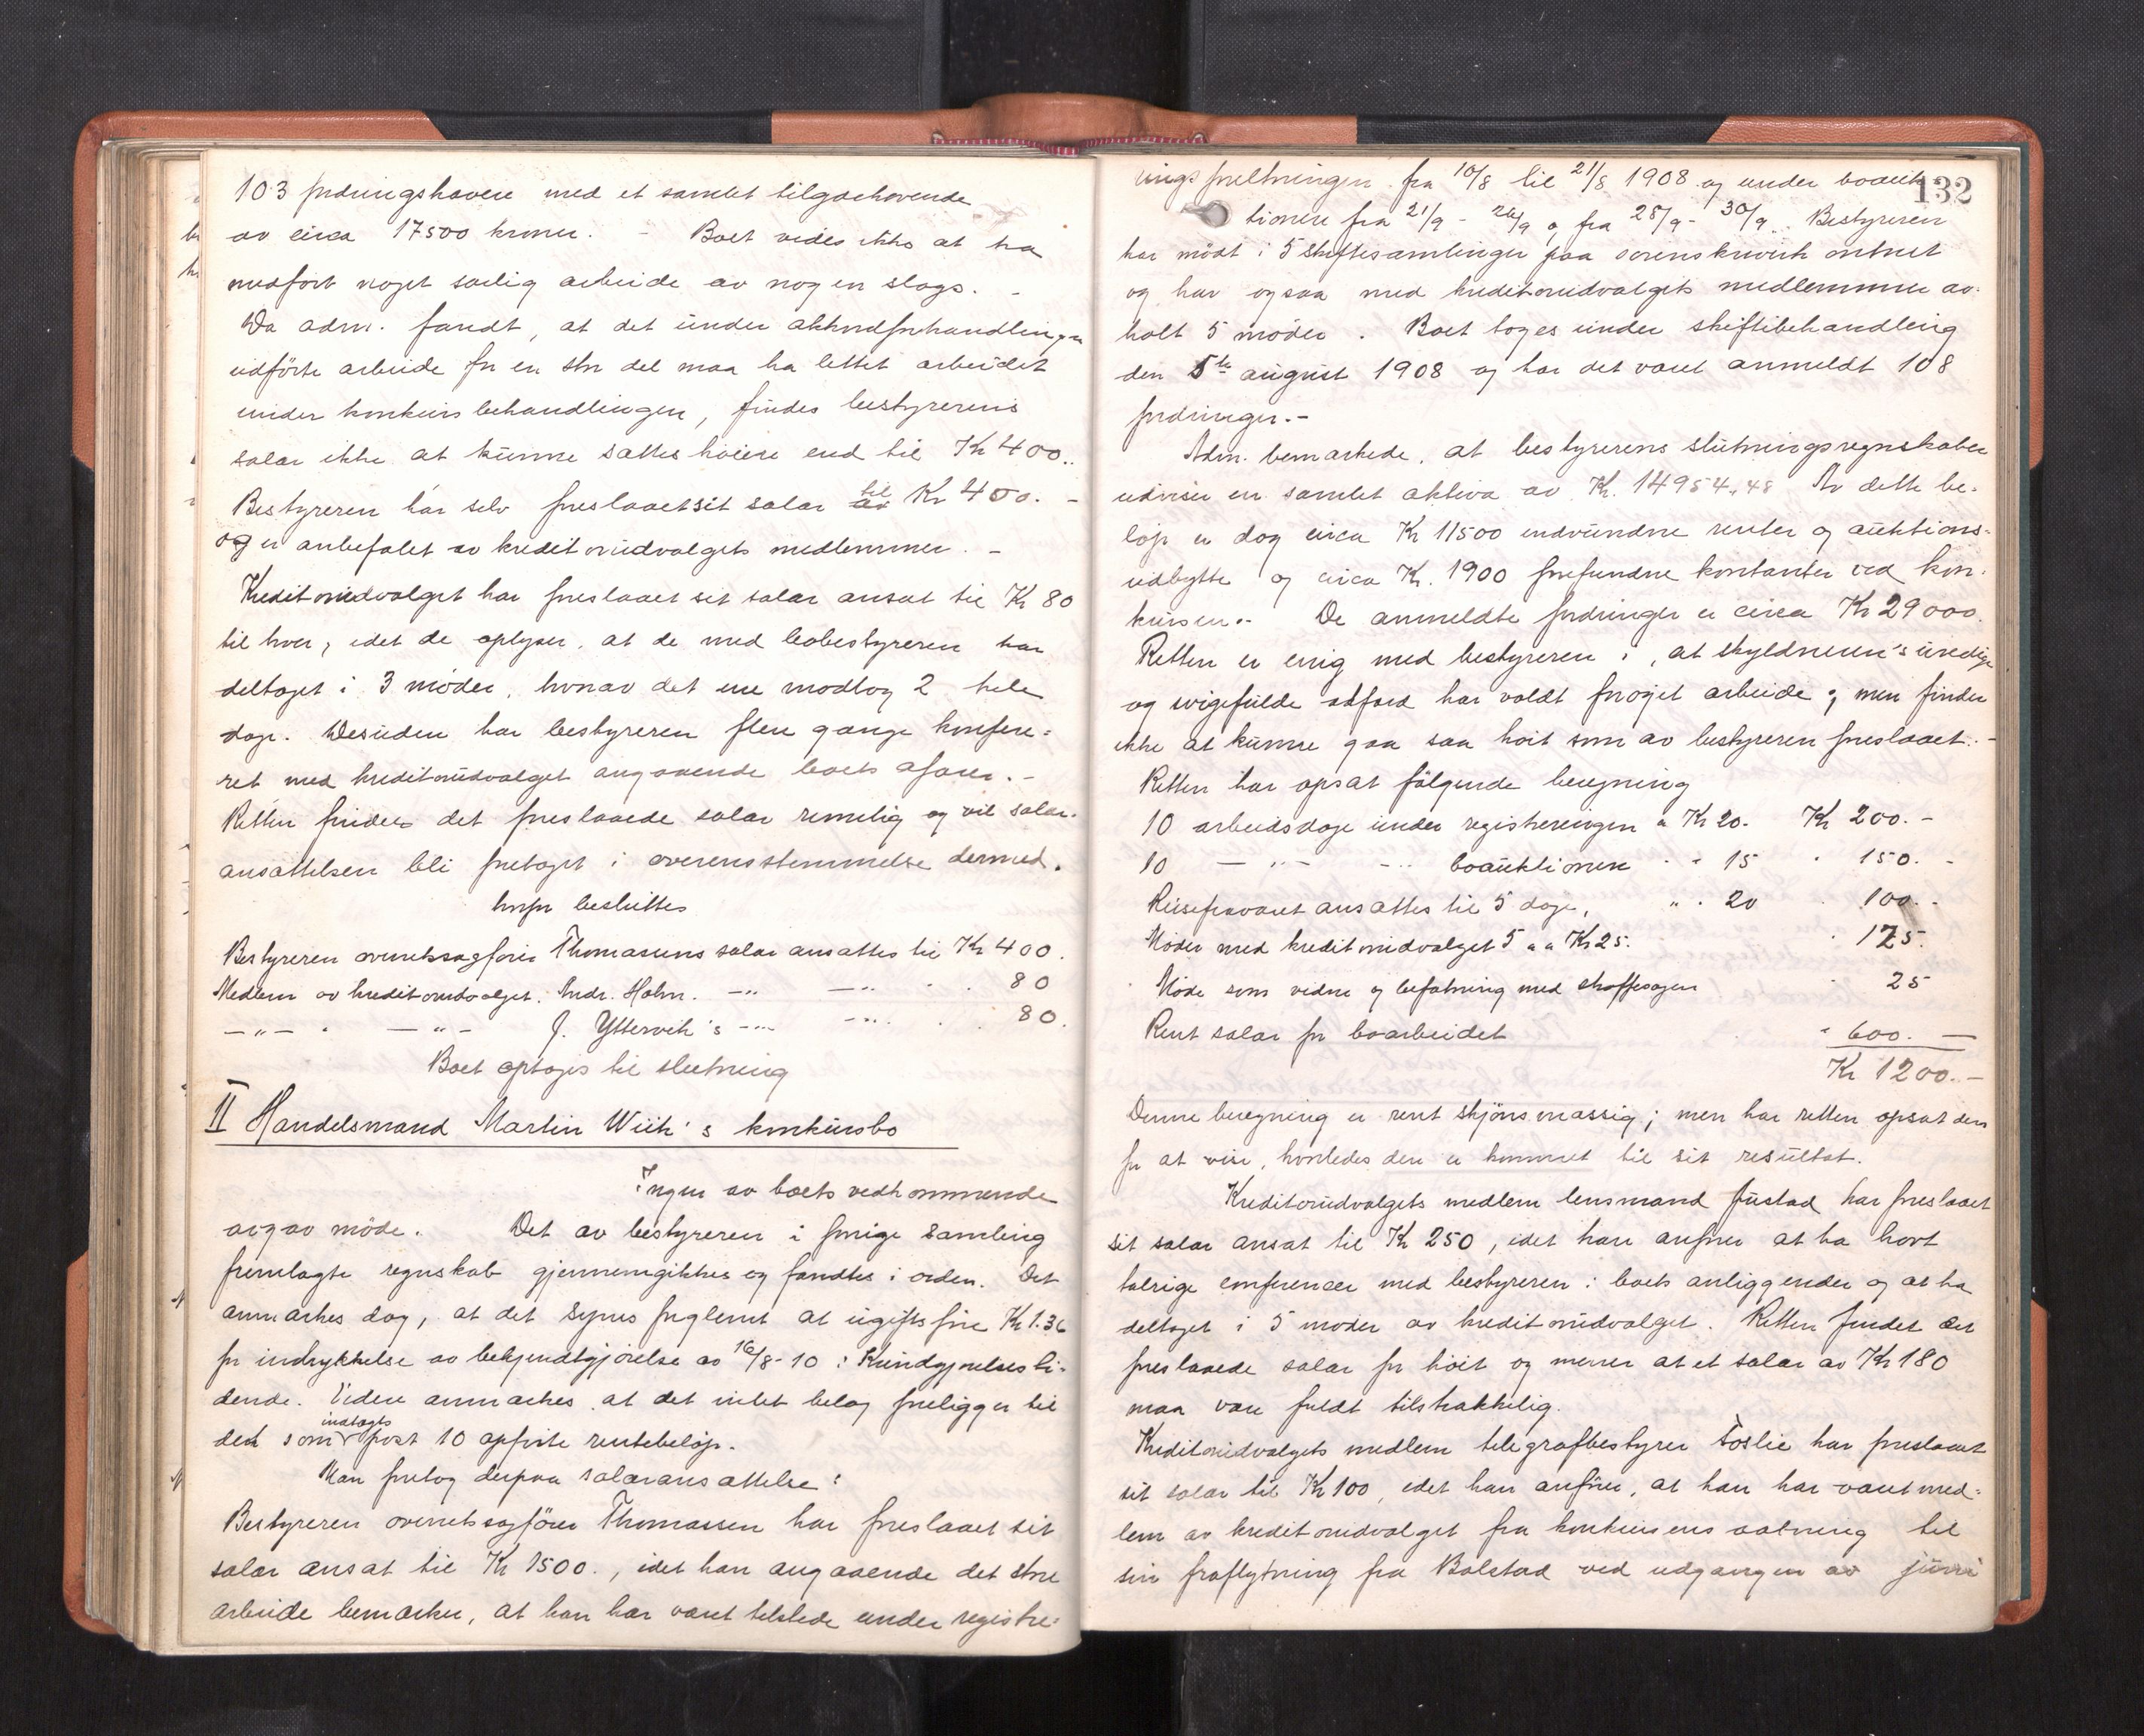 103 fordringshavere med et samlet tilgodehavende
av circa 17500 kroner. - Boet vides ikke at ha
medført noget særlig arbeide av nogen slags. -
Da adm. fandt, at det under akkordforhandlingen
udførte arbeide for en stor del maa ha lettet arbeidet
under konkursbehandlingen, findes bestyrerens
salær ikke at kunne sættes høiere end til Kr 400..
Bestyreren har selv foreslaaet sit salær av til Kr 400. -
og er anbefalet av kreditorudvalgets medlemmer. -
Kreditorudvalget har foreslaaet sit salær ansat til Kr 80
til hver, idet de oplyser, at de med bobestyreren har
deltaget i 3 møder, hvorav det ene modtog 2 hele
dage. Desuden har bestyreren flere gange konfere-
ret med kreditorudvalget angaaende boets afærer. -
Retten finder det foreslaaede salær rimelig og vil salær-
ansættelsen bli foretaget i overensstemmelse dermed.
hvorfor besluttes
Bestyreren overretssagfører Thomassens salær ansættes til Kr 400.
Medlem av kreditorudvalget. Andr. Holm. -"- -"- 80
-"- -"- J. Yttervik's -"- -"- 80.
Boet optages til slutning
II Handelsmand Martin Wiik's konkursbo
Ingen av boets vedkommende
avgav møde. Det av bestyreren i forrige samling
fremlagte regnskab gjennemgikkes og fandtes i orden. Det
anmærkes dog, at det synes forglemt at udgiftsføre Kr 1.36
for indrykkelse av bekjendtgjørelse av 16/8-10 i Kundgjørelsesti-
dende. Videre anmærkes at det intet belæg foreligger til
den som indtægts post 10 opførte rentebeløp.
Man foretog derpaa salæransættelse:
Bestyreren overretssagfører Thomassen har foreslaaet sit
salær ansat til Kr 1500., idet han angaaende det store
arbeide bemærker, at han har været tilstede under registre-
132
ringsforretningen fra 10/8 til 21/8 1908 og under boauk-
tionene fra 21/9 - 26/9 og fra 28/9 - 30/9. Bestyreren
har mødt i 5 skiftesamlinger paa sorenskriverkontoret
og har ogsaa med kreditorudvalgets medlemmer av-
holt 5 møder. Boet toges under skiftebehandling
den 5te august 1908 og har det været anmeldt 108
fordringer. -
Adm. bemærkede, at bestyrerens slutningsregnskaber
udviser en samlet aktiva av Kr. 14954,48 Av dette be-
løp er dog circa Kr 11500 indvundne renter og auktions-
udbytte og circa Kr. 1900 forefundne kontanter ved kon-
kursen. - De anmeldte fordringer er circa Kr 29000.
Retten er enig med bestyreren i, at skyldneren's uredige
og svigefulde adfærd har voldt forøget arbeide; men finder
ikke at kunne gaa saa høit som av bestyreren foreslaaet. -
Retten har opsat følgende beregning
10 arbeidsdage under registreringen a Kr 20. Kr 200. -
10 - " - - " boauktionene - " 15 " 150. -
Reisefraværet ansættes til 5 dage, " " 20 100. -
Møder med kreditorudvalget 5 a a Kr 25. " 125.
Møde som vidne og befatning med straffesagen " 25
Rent salær for boarbeidet " 600. -
Kr 1200. -
Denne beregning er rent skjønsmæssig; men har retten opsat den
for at vise, hvorledes den er kommet til sit resultat.
Kreditorudvalgets medlem lensmand Justad har foreslaaet
sit salær ansat til Kr 250, idet han anfører at ha havt
talrige conferencer med bestyreren i boets anliggender og at ha
deltaget i 5 møder av kreditorudvalget. Retten finder det
foreslaaede salær for høit og mener at et salær av Kr 180
maa være fuldt tilstrækkelig.
Kreditorudvalgets medlem telegrafbestyrer Foslie har foreslaaet
sit salær til Kr 100, idet han anfører, at han har været med-
lem av kreditorudvalget fra konkursens aabning til
sin fraflytning fra Balstad ved udgangen av juni